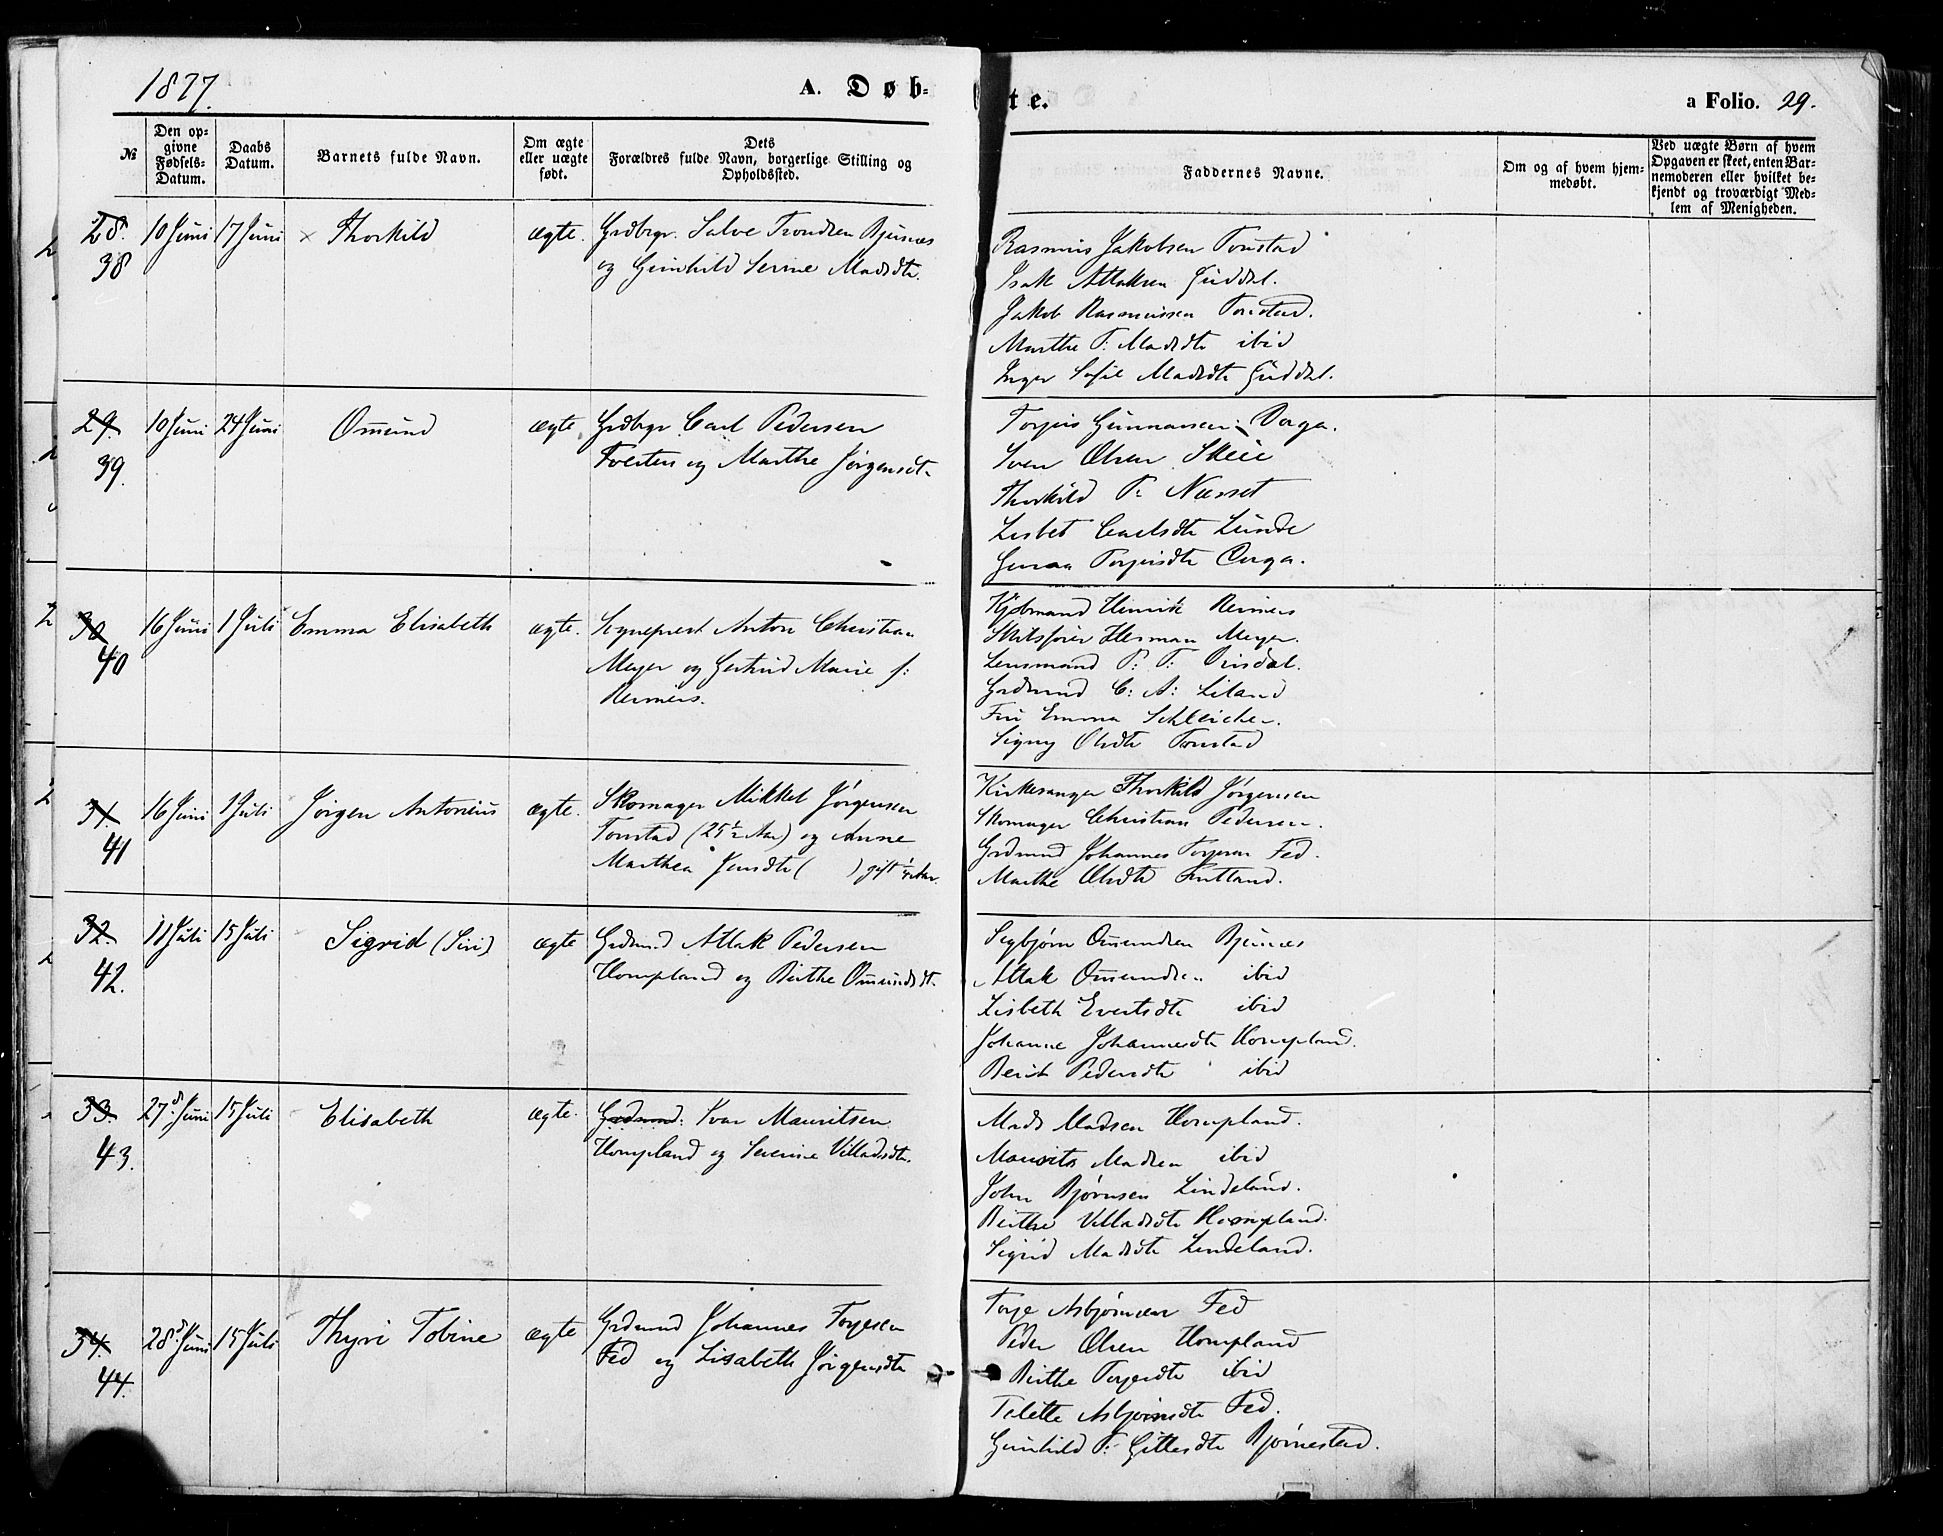 1877.
A. Døb-
te.
a Folio. 29.
№
Den op-
givne
Fødsels-
Datum.
Daabs
Datum.
Barnets fulde Navn.
Om ægte
eller uægte
født.
Dets
Forældres fulde Navn, borgerlige Stilling og
Opholdssted.
Faddernes Navne.
Om og af hvem hjem-
medøbt.
Ved uægte Børn af hvem
Opgaven er skeet, enten Bar-
nemoderen eller hvilket be-
kjendt og troværdigt Med-
lem af Menigheden.
28. 10 Juni 17 Juni × Thorkild ægte. Grdbrgr. Salve Trondsen Bjunæs
38 og Gunhild Serine Madsdtr.
Rasmus Jakobsen Tonstad
Isak Atlaksen Guddal.
Jakob Rasmussen Tonstad.
Marthe T: Madsdtr ibid
Inger Sofie Madsdtr Guddal.
29. 10 Juni 24 Juni Omund ægte Grdbrgr Carl Pedersen
39. og Marthe Jørgensdt.
Gunnarsen
Sven Olsen Skeie
Thorkild T: Næsset
Lisbet Carlsdtr Lunde
30 16 Juni 1 Juli Emma Elisabeth ægte. Sogneprest Anton Christian
40 Meyer og Gertrud Marie f:
Reimers.
Kjøbmand Henrik Reimers
Herman Meyer.
Lensmand P: T: Sirdal.
Grdmnd C: A: Liland
Fru Emma Schleicher.
Signy Olsdtr Tonstad
31. 16 Juni 1 Juli Jørgen Antonius ægte. Skomager Mikkel Jørgensen
41 Tonstad (25½ Aar) og Anne
Marthea Jensdtr ( ) gift ½ Aar.
Kirkesanger Thorkild Jørgensen
Skomager Christian Pedersen.
Grdmnd Johannes Torjesen Fed.
Marthe Olsdtr
32. 11 Juli 15 Juli Sigrid (Siri) ægte Grdmnd Atlak Pedersen
42. Hompland og Birthe Omundsdt.
Segbjørn Omundsen Bjunæs
Atlak Omundsen ibid
Lisbeth Evertsdtr ibid
Johanne Johannesdtr Hompland.
Berit Pedersdtr ibid
33. 27d. Juni 15 Juli Elisabeth ægte. Grdmnd: Ivar Mauritsen
43. Hompland og Serine Villadsdtr.
Mads Madsen Hompland.
Maurits Madsen ibid
John Bjørnsen Lindeland.
Birthe Villadsdtr Hompland.
Sigrid Madsdtr Lindeland.
34. 28d Juni 15 Juli Thyri Tobine ægte Grdmnd Johannes Torjesen
44. Fed og Lisabeth Jørgensdtr
Torje Asbjørnsen Fed
Peder Olsen Hompland
Birthe Torjesdtr ibid
Telette Asbjørnsdtr Fed.
Gunhild T: Gittesdtr Bjørnestad.